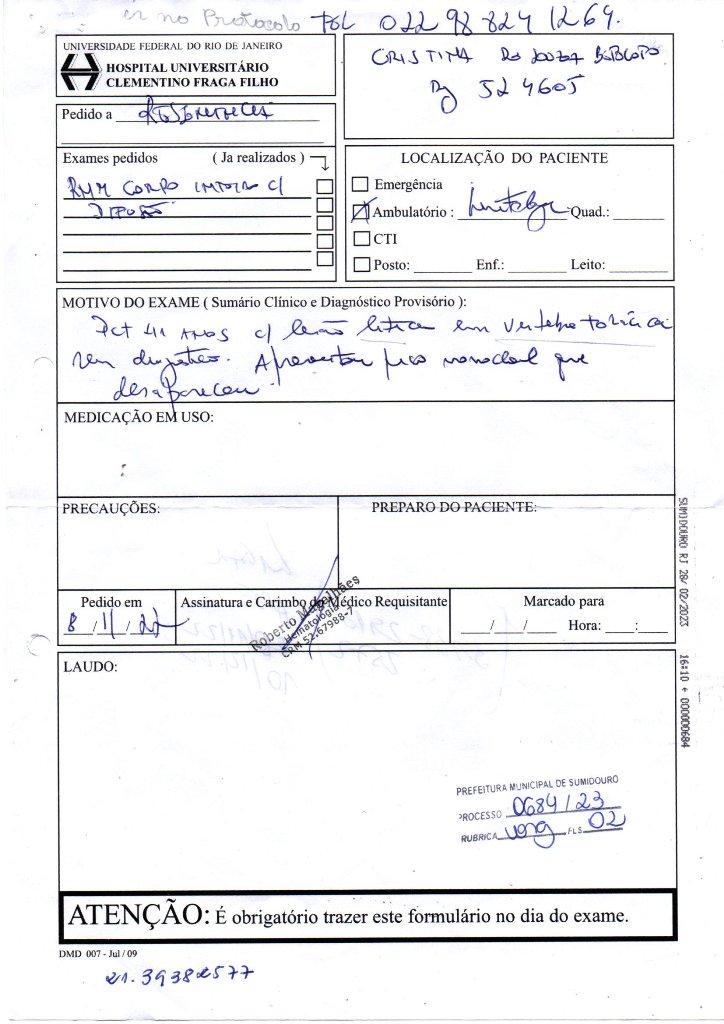 no Protocolo Tel 022 98 824 1264.
UNIVERSIDADE FEDERAL DO RIO DE JANEIRO
HOSPITAL UNIVERSITÁRIO
CLEMENTINO FRAGA FILHO
CRISTINA
524605
Pedido a
Exames pedidos ( Ja realizados )
RNM CORPO INTEIRO c/
DIFUSÃO
LOCALIZAÇÃO DO PACIENTE
Emergência
Ambulatório : Quad.:
CTI
Posto: Enf.: Leito:
MOTIVO DO EXAME ( Sumário Clínico e Diagnóstico Provisório ):
Pct 41 ANOS c/ lesão lítica em vertebra torácica
sem diagnóstico. Apresentou pico monoclonal que
desapareceu.
MEDICAÇÃO EM USO:
PRECAUÇÕES:
PREPARO DO PACIENTE:
Pedido em
8/11/22
Assinatura e Carimbo do Médico Requisitante
Roberto Magalhães
Hematologia
CRM 52-67988-7
Marcado para
/ / Hora: :
SUMIDOURO RJ 28/02/2023 16:10 + 000000684
LAUDO:
PREFEITURA MUNICIPAL DE SUMIDOURO
PROCESSO 0684/23
RUBRICA FLS 02
ATENÇÃO: É obrigatório trazer este formulário no dia do exame.
DMD 007 - Jul / 09
21.39382577